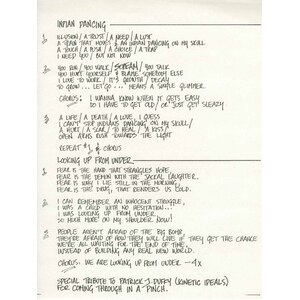 INDIAN DANCING
1. ILLUSION / A TRUST / A NEED / A LUST
A TRAIN THAT MOVES & AN INDIAN DANCING ON MY SKULL
A TOUCH / A PUSH / A CHOICE / A TRAP
I NEED YOU / BUT NOT NOW
2. YOU RUN / YOU WALK / SCREAM / YOU TALK
YOU HURT YOURSELF & BLAME SOMEBODY ELSE
I LOVE TO WORK / IT'S GROWTH / DECAY
TO GROW ... LET'GO ... MEANS A SIMPLE GLIMMER.
CHORUS: I WANNA KNOW WHEN IT GETS EASY
DO I HAVE TO GET OLD / OR JUST GET SLEAZY
3. A LIFE / A DEATH / A LOVE, I GUESS
I CAN'T STOP INDIANS DANCING ON MY SKULL /
A HURT / A SCAR / TO HEAL / A KISS /
OPEN ARMS RUSH TOWARDS THE LIGHT
REPEAT #1 & CHORUS
LOOKING UP FROM UNDER
1. FEAR IS THE HAND THAT STRANGLES HOPE,
FEAR IS THE DEMON WITH THE LAUGHTER,
FEAR IS WHY I LIE STILL IN THE MORNING,
FEAR IS THE DRUG, THAT RENDERS US COLD.
2. I CAN REMEMBER AN INNOCENT STRUGGLE,
I WAS A CHILD WITH NO HESITATION
I WAS LOOKING UP FROM UNDER,
SO MUCH MORE ON MY SHOULDER NOW!
3. PEOPLE AREN'T AFRAID OF THE BIG BOMB
THEY'RE AFRAID OF HOW THEY WILL LIVE IF THEY GET THE CHANCE
WE'RE ALL WAITING FOR THE END OF TIME,
INSTEAD OF BUILDING ANY REAL NEW WORLD.
CHORUS: WE ARE LOOKING UP FROM UNDER — 4X
SPECIAL TRIBUTE TO PATRICK J. DUFFY (KINETIC IDEALS)
FOR COMING THROUGH IN A PINCH.